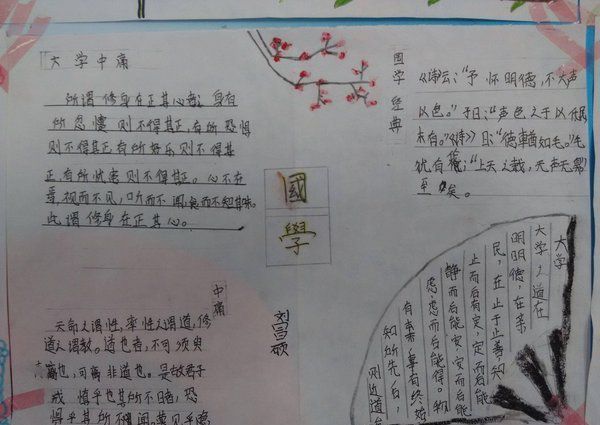 大学中庸
所谓修身在正其心者：身有
所忿懥则不得其正，有所恐惧
则不得其正有所好乐则不得其
正，有所忧患则不得其正。心不在
焉，视而不见，听而不闻，食而不知其味。
此谓修身在正其心。
国学经典
《诗云：“予怀明德，不大声
以色。”子曰：“声色之于以化民
未有。”《诗》曰：“德輶如毛。”毛
犹有伦；“上天之载，无声无臭
至矣。
國
學
大学
大学之道在
明明德，在亲
民，在止于至善，知
止而后有定，定而后能
静而后能安，安而后能
虑，虑而后能得。物
有本末，事有终始
知所先后，
则近道
中庸
天命之谓性，率性之谓道，修
道之谓教。道也者，不可须臾
离也，可离非道也。是故君子
戒慎乎其所不睹，恐
惧乎其所不闻。莫见乎隐